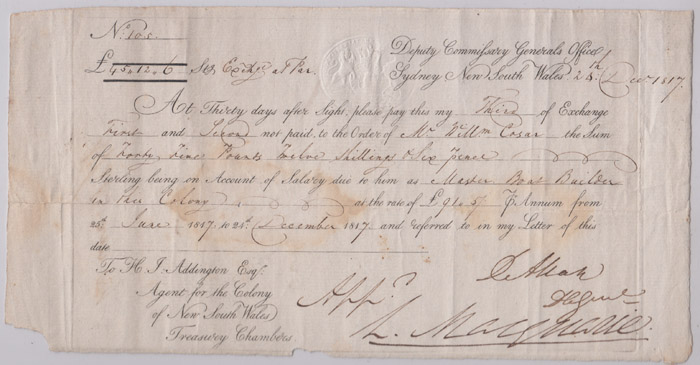 No. 105
£45,12,6 Stg. Exchge. at Par.
Deputy Commissary Generals Office
Sydney New South Wales 24th Decr. 1817.
At Thirty days after Sight, please pay this my Third of Exchange
First and Second not paid, to the Order of Mr. Willm Cosar the Sum
of Forty Five Pounds Twelve Shillings & Six Pence
Sterling being on Account of Salary due to him as Master Boat Builder
in this Colony at the rate of £91,5 P. Annum from
25th June 1817 to 24th December 1817 and referred to in my Letter of this
date
To H. J. Addington Esqr.
Agent for the Colony
of New South Wales
Treasury Chambers.
Appd.
L. Macquarie.